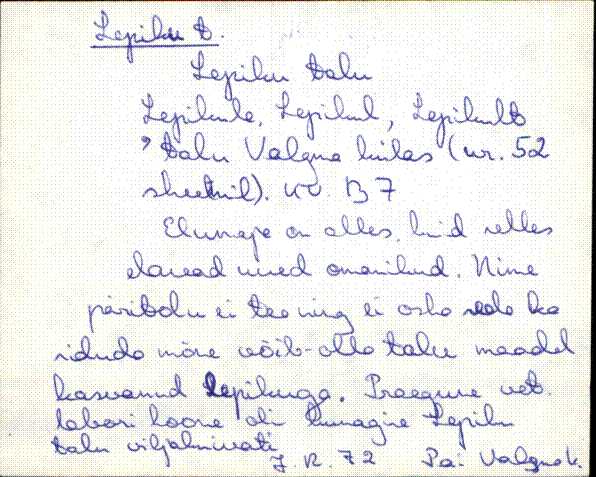 Lepiku t.
Lepiku talu
Lepikule, Lepikul, Lepikult
talu Valgma külas (nr. 52
skeemil). KV. B7
Elumaja on alles, kuid selles
elavad uued omanikud. Nime
päritolu ei tea ning ei oska seda ka
siduda mõne võib-olla talu maadel
kasvanud lepikuga. Praegune vet.
labori hoone oli kunagine Lepiku
talu viljakuivati
J. R. 72 Pai Valgmak.